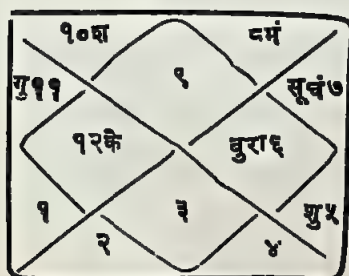 १०श ८मं
गु११ ९ सूचं७
१२के बुरा६
१ ३ शु५
२ ४